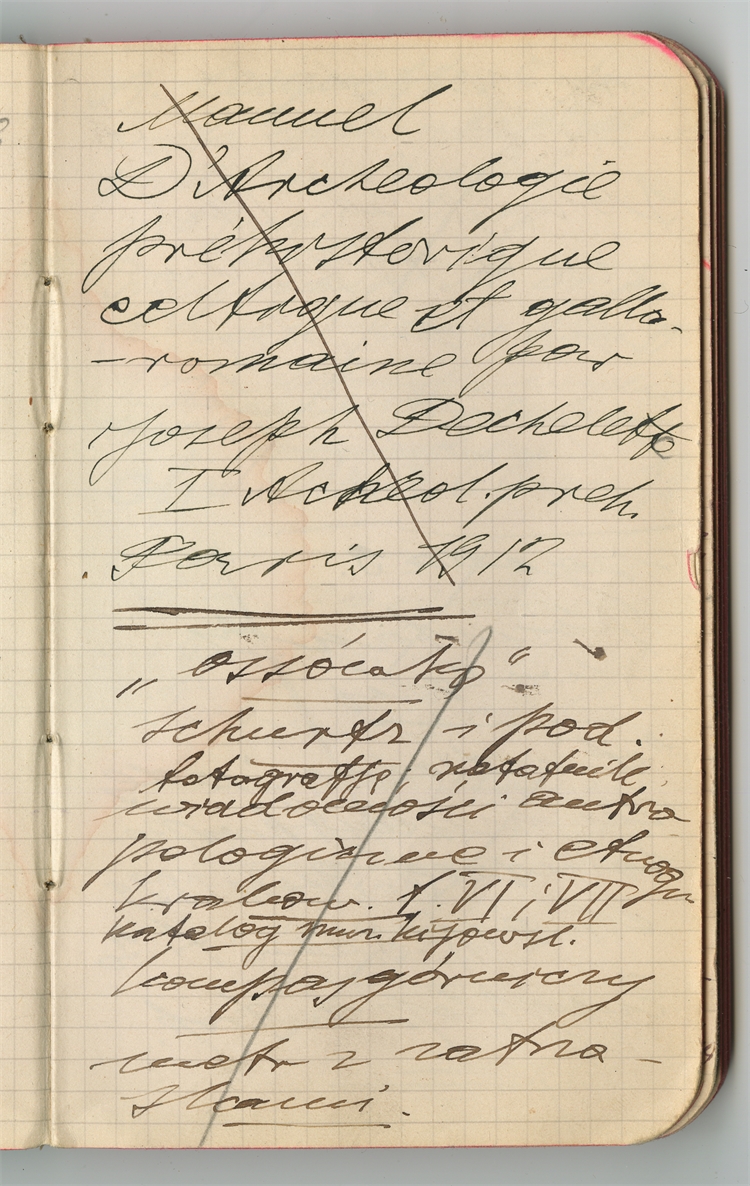 Manuel
D'Archeologie
préhystorique
celtique et gallo-
-romaine par
Joseph Dechelette
I Archeol. preh.
Paris 1912
„Ossówka"
Schurtz i pod.
fotografje, notatnik,
wiadomości antro
pologiczne i etnogr.
krakow. t. VI i VII
katalog muz. kijowsk.
kompas górniczy
metr z zatrza-
skami.